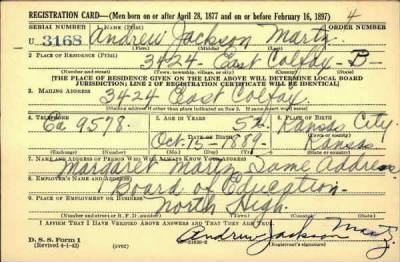 REGISTRATION CARD—(Men born on or after April 28, 1877 and on or before February 16, 1897) 4
SERIAL NUMBER 1. NAME (Print) ORDER NUMBER
U 3168 Andrew Jackson Martz
(First) (Middle) (Last)
2. PLACE OF RESIDENCE (Print)
3424 - East Colfax - D -
(Number and street) (Town, township, village, or city) (County) (State)
[THE PLACE OF RESIDENCE GIVEN ON THE LINE ABOVE WILL DETERMINE LOCAL BOARD
JURISDICTION; LINE 2 OF REGISTRATION CERTIFICATE WILL BE IDENTICAL]
3. MAILING ADDRESS
3424 East Colfax
[Mailing address if other than place indicated on line 2. If same insert word same]
4. TELEPHONE 5. AGE IN YEARS 6. PLACE OF BIRTH
Ea 9578. 52 Kansas City
DATE OF BIRTH
Oct - 15 - 1889 - Kansas
7. NAME AND ADDRESS OF PERSON WHO WILL ALWAYS KNOW YOUR ADDRESS
Margaret Martz Same address
8. EMPLOYER'S NAME AND ADDRESS
Board of Education -
9. PLACE OF EMPLOYMENT OR BUSINESS
North High.
(Number and street or R. F. D. number) (Town) (County) (State)
I AFFIRM THAT I HAVE VERIFIED ABOVE ANSWERS AND THAT THEY ARE TRUE.
D. S. S. Form 1
(Revised 4-1-42) (over) Andrew Jackson Martz
(Registrant's signature)